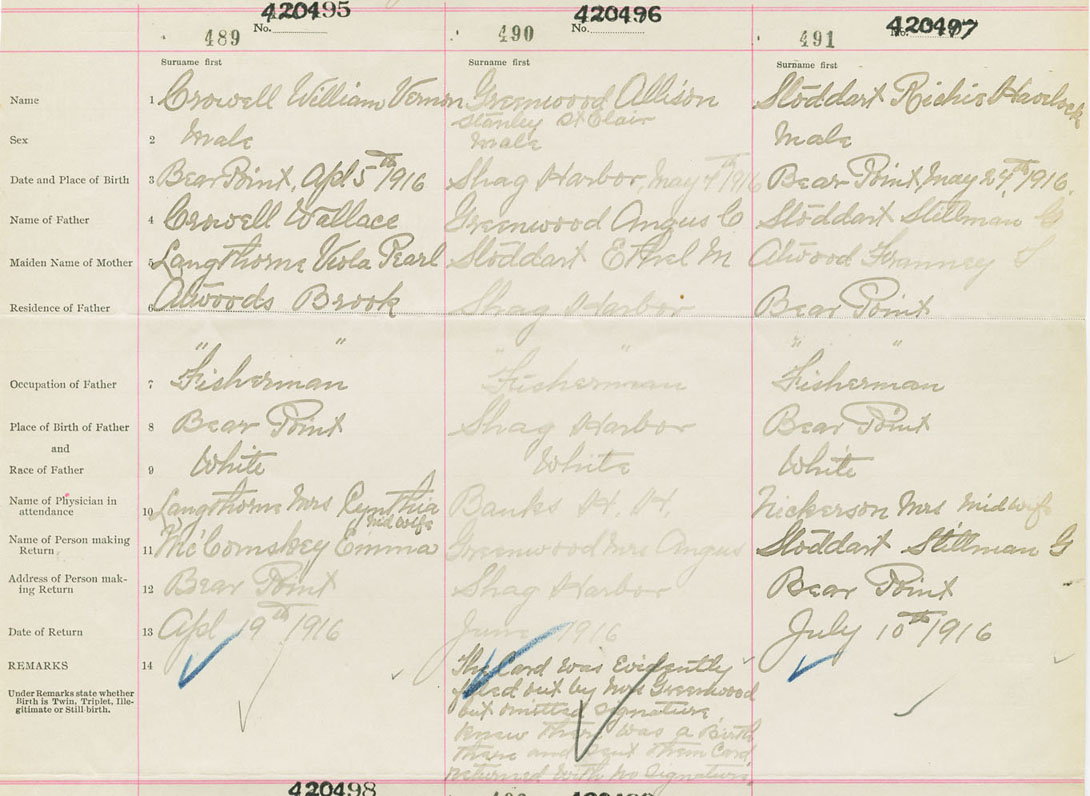 420495 420496 420497
489 No. 490 No. 491 No.
Surname first Surname first Surname first
Name 1 Crowell William Vernon Greenwood Allison Stoddart Richie Havelock
Stanley St Clair
Sex 2 Male Male Male
Date and Place of Birth 3 Bear Point, Apl 5th 1916 Shag Harbor, May 4th 1916 Bear Point, May 24th, 1916.
Name of Father 4 Crowell Wallace Greenwood Angus C Stoddart Stillman G
Maiden Name of Mother 5 Langthorne Viola Pearl Stoddart Ethel M Atwood Franney
Residence of Father 6 Atwoods Brook Shag Harbor Bear Point
" " " " " "
Occupation of Father 7 Fisherman Fisherman Fisherman
Place of Birth of Father 8 Bear Point Shag Harbor Bear Point
and
Race of Father 9 White White White
Name of Physician in
attendance 10 Langthorne Mrs Cynthia Banks H. H. Nickerson Mrs Midwife
Midwife
Name of Person making
Return 11 McComskey Emma Greenwood Mrs Angus Stoddart Stillman G
Address of Person mak-
ing Return 12 Bear Point Shag Harbor Bear Point
Date of Return 13 Apl 19th 1916 June 1916 July 10th 1916
REMARKS 14 The Card was Evidently
filled out by Mrs Greenwood
Under Remarks state whether
Birth is Twin, Triplet, Ille-
gitimate or Still-birth.
but omitted Signature,
Knew there was a Birth
there and sent them Card
returned with no Signature.
420498